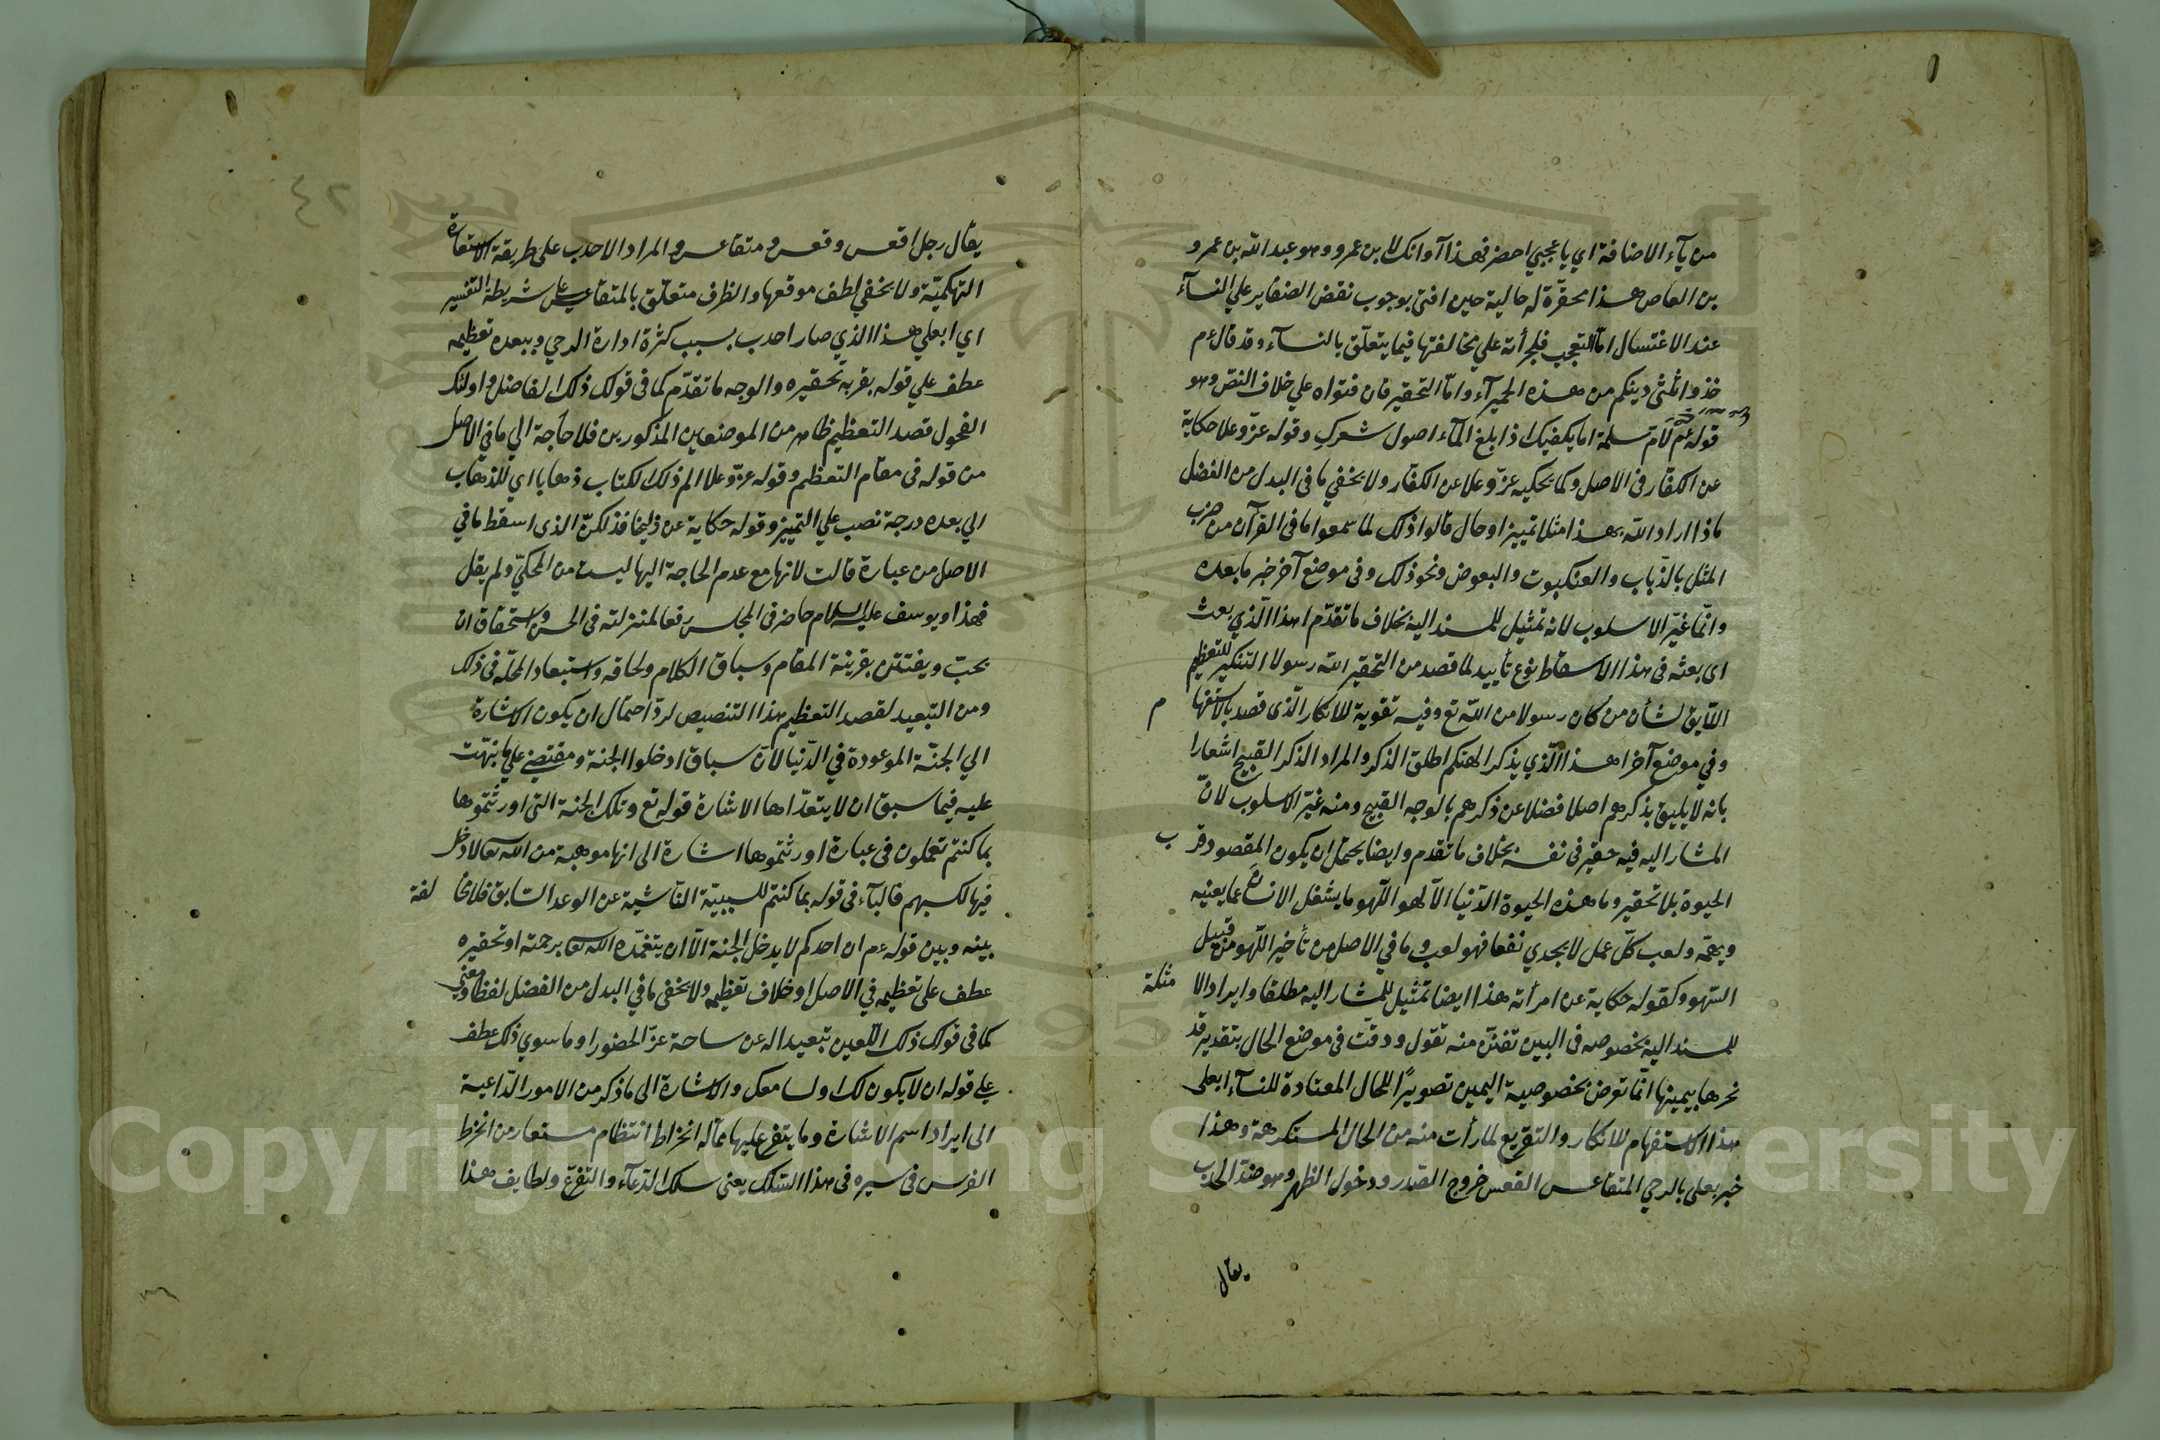 من ياء الاضافة اي يا عجبي احضر فهذا آوانك لابن عمرو وهو عبد الله بن عمرو
بن العاص هذا محقرة له حالية حين افتى بوجوب نقض الضفاير علي النسآء
عند الاغتسال امّا التعجب فلجرأته علي مخالفتها فيما يتعلّق بالنسآء وقد قال ءم
خذوا ثلثى دينكم من هذه الحميرآء وامّا التحقير فان فتواه علي خلاف النص وهو
قوله ءم لام سلمة اما يكفيك اذا بلغ المآء اصول شعرك وقوله عزّ وعلا حكاية
عن الكفار في الاصل وكما يحكيه عزّ وعلا عن الكفار ولا يخفي ما في البدل من الفضل
ماذا اراد الله بهذا مثلا تمييز او حال قالوا ذلك لما سمعوا ما في القرآن من ضرب
المثل بالذباب والعنكبوت والبعوض ونحو ذلك وفي موضع آخر خبر ما بعده
وانّما غيّر الاسلوب لانه تمثيل للمسند اليه بخلاف ما تقدّم اهذا الّذي بعث
اى بعثه في هذا الاسقاط نوع تأييد لما قصد من التحقير الله رسولا التنكير للتعظيم
اللآيق لشأن من كان رسولا من الله تع وفيه تقوية للانكار الذى قصد بالاستفها م
وفي موضع آخر اهذا الّذي يذكر الهتكم اطلق الذكر والمراد الذكر القبيح اشعارا
بانه لا يليق بذكرهم اصلا فضلا عن ذكرهم بالوجه القبيح ومنه غيّر الاسلوب لانّ
المشار اليه فيه حقير في نفسه بخلاف ما تقدم وايضا يحتمل ان يكون المقصود قر ب
الحيوة بلا تحقير وما هذه الحيوة الدّنيا الاّ لهو اللّهو ما يشغل الانسان عما يعنيه
ويهمّه ولعب كلّ عمل لا يجدي نفعا فهو لعب وما في الاصل من تأخير اللّهو من قبيل
السّهو وكقوله حكاية عن امرأته هذا ايضا تمثيل للمشار اليه مطلقا وايراد الا مثلة
للمسند اليه بخصوصه في البين تفنّن منه تقول ودقّت في موضع الحال بتقدير قد
نحرها بيمينها انّما تعرض بخصوصية اليمين تصويرًا للحال المعتادة للنسآء ابعلى
هذا الاستفهام للانكار والتقريع لما رأت منه من الحال المستكرهة وهذا
خبر بعلى بالرحي المتقاعس القعس خروج الصّدر ودخول الظهر وهو ضدّ الحدب
يقال
يقال رجل اقعس وقعس ومتقاعس والمراد الاحدب على طريقة الاستعارة
التهكميّة ولا يخفي لطف موقعها والظرف متعلّق بالمتقاعس على شريطة التفسير
اي ابعلي هذا الذي صار احدب بسبب كثرة ادارة الرحي وببعده تعظيمه
عطف علي قوله بقربه تحقيره والوجه ما تقدّم كما في قولك ذلك الفاضل واولئك
الفحول قصد التعظيم ظاهر من الموضعين المذكورين فلا حاجة الي ما في الاصل
من قوله في مقام التعظيم وقوله عزّ وعلا الم ذلك الكتاب ذهابا اي للذهاب
الي بعده درجة نصب علي التمييز وقوله حكاية عن زليخا فذلكنّ الذى اسقط ما في
الاصل من عبارة قالت لانها مع عدم الحاجة اليها ليست من المحكيّ ولم يقل
فهذا ويوسف عليه السلام حاضر في المجلس رفعا لمنزلته في الحسن واستحقاق ان
يحبّ ويفتتن بقرينة المقام وسباق الكلام ولحاقه واستبعاد المحلّه في ذلك
ومن التبعيد لقصد التعظيم هذا التنصيص لردّ احتمال ان يكون الاشارة
الي الجنّة الموعودة في الدّنيا لانّ سباق ادخلوا الجنة ومقتضي علي ما نبهت
عليه فيما سبق ان لا يتعدّاها الاشارة قوله تع وتلك الجنة التى اورثتموها
بما كنتم تعملون في عبارة اورثتموها اشارة الى انها موهبة من الله تعالى لا دخل
فيها لكسبهم فالبآء في قوله بما كنتم للسببيّة النّاشية عن الوعد السّابق فلا مخا لفة
بينه وبين قوله ءم ان احدكم لا يدخل الجنة الاّ ان يتغمّده الله تعا برحمته او تحقيره
عطف على تعظيمه في الاصل او خلاف تعظيمه ولا يخفى ما في البدل من الفضل لفظا ومعنى
كما في قولك ذلك اللّعين تبعيدا له عن ساحة عزّ الحضور او ما سوي ذلك عطف
علي قوله ان لا يكون لك او لسامعك والاشارة الى ما ذكر من الامور الدّاعية
الى ايراد اسم الاشارة وما يتفرع عليها مما له انخراط انتظام مستعار من انخرط
الفرس في سيره في هذا السّلك يعنى سلك الدّعآء والتّفرع ولطايف هذا
٤٢
Copyright © King Saud University